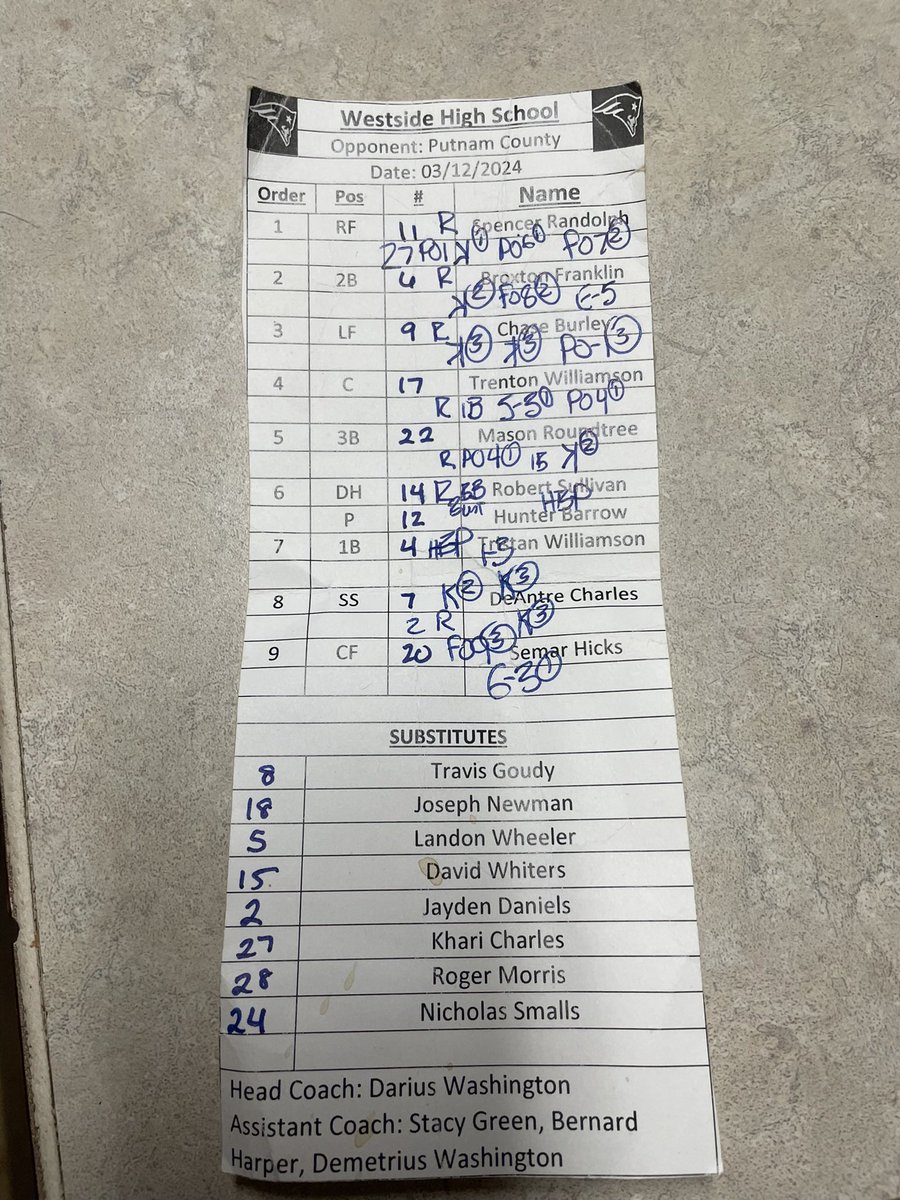 Westside High School
Opponent: Putnam County
Date: 03/12/2024
Order Pos # Name
1 RF 11 R Spencer Randolph
27 PO1 K① PO6① PO7②
2 2B 4 R Broxton Franklin
K② FO8② E-5
3 LF 9 R Chase Burley
K③ K③ PO-1③
4 C 17 Trenton Williamson
R 1B 5-3① PO4①
5 3B 22 Mason Roundtree
R PO4① K②
6 DH 14 R BB Robert Sullivan
P 12 HBP Hunter Barrow
7 1B 4 HBP Tristan Williamson
K② K③
8 SS 7 DeAntre Charles
2 R K③
9 CF 20 FO9③ Semar Hicks
6-3①
SUBSTITUTES
8 Travis Goudy
18 Joseph Newman
5 Landon Wheeler
15 David Whiters
2 Jayden Daniels
27 Khari Charles
28 Roger Morris
24 Nicholas Smalls
Head Coach: Darius Washington
Assistant Coach: Stacy Green, Bernard
Harper, Demetrius Washington